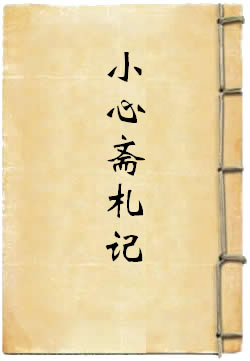 小心斋札记